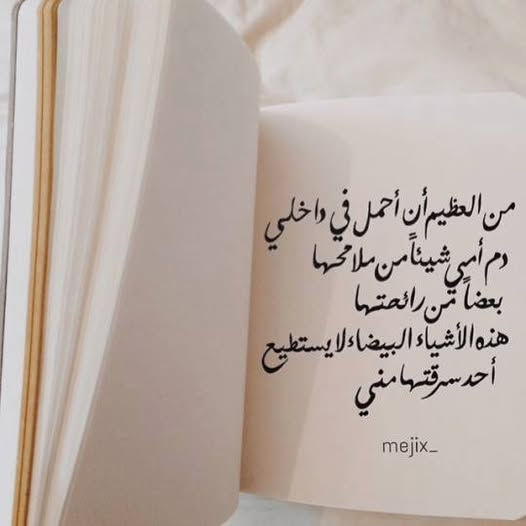 من العظيم أن أحمل في داخلي
دم أمي شيئاً من ملامحها
بعضاً من رائحتها
هذه الأشياء البيضاء لا يستطيع
أحد سرقتها مني
mejix_